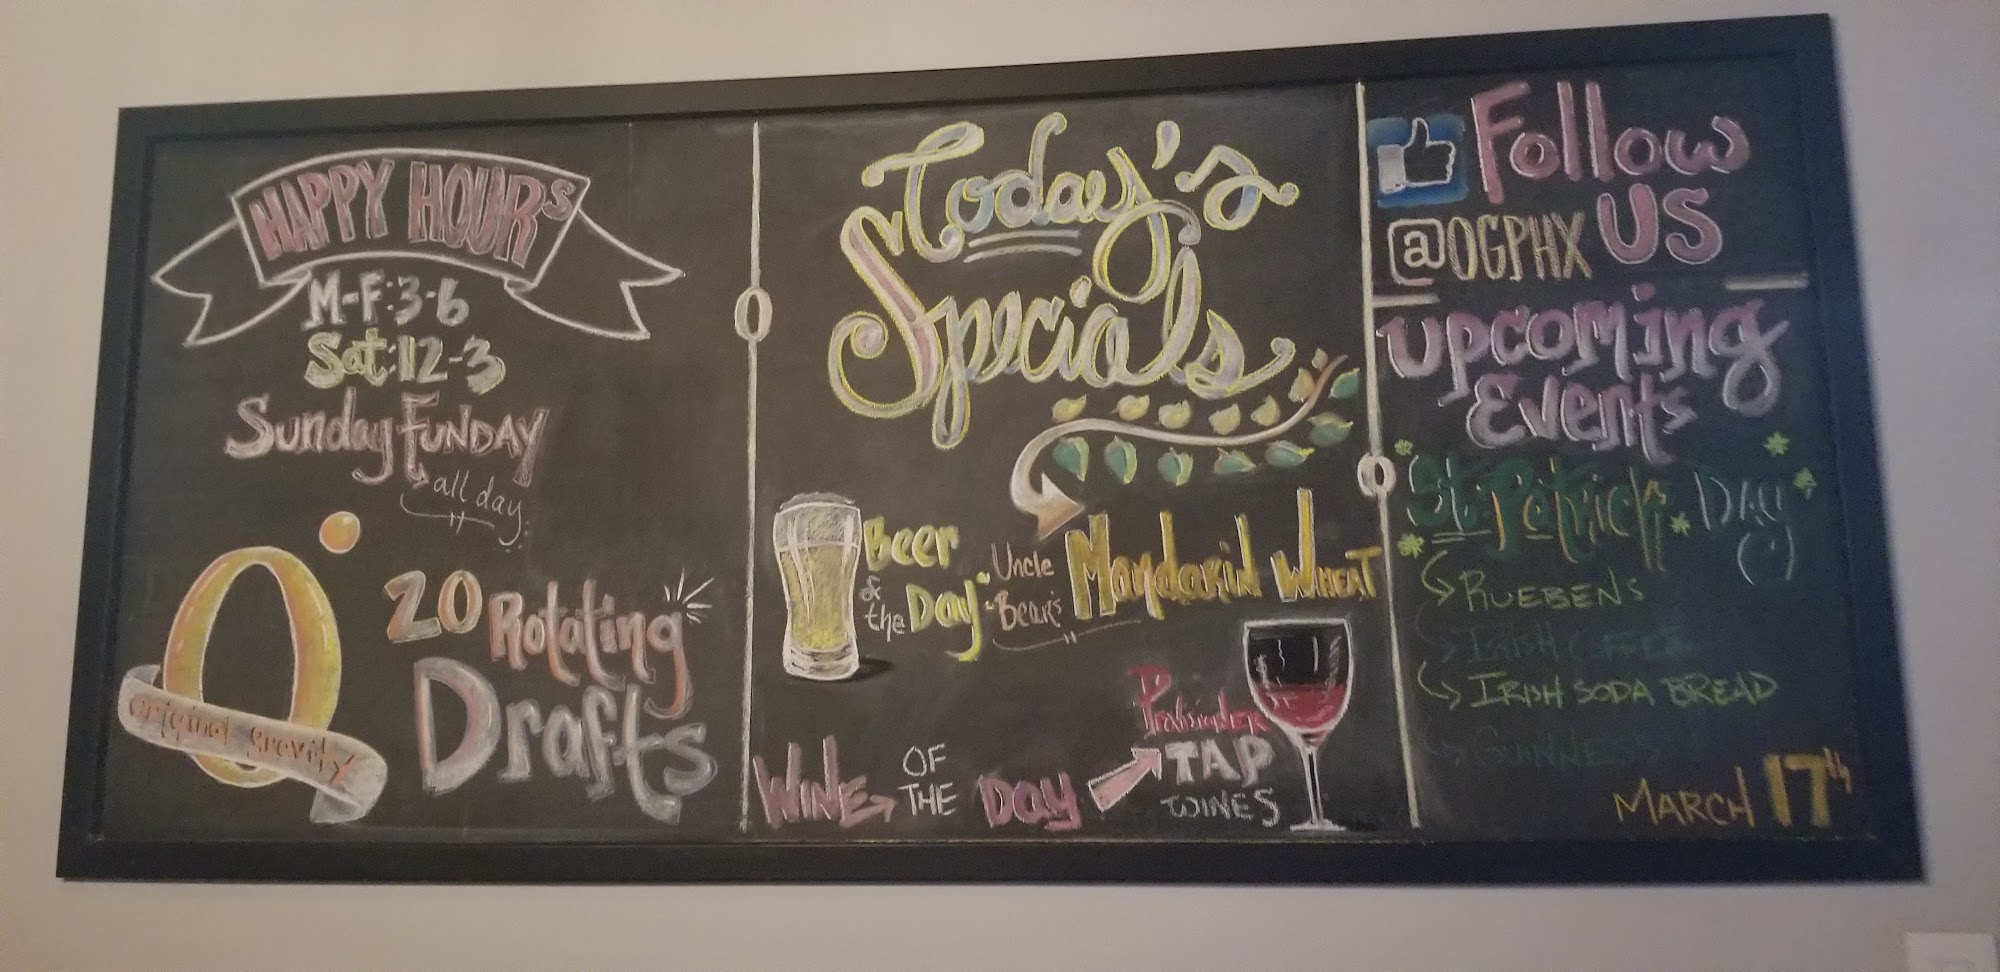 HAPPY HOURs
M-F: 3-6
Sat: 12-3
Sunday FUNDAY
all day
original gravity
20 Rotating
Drafts
Today's
Specials
Beer
of
the Day
Uncle
Bear's
Mandarin Wheat
WINE OF THE Day
TAP
WINES
Follow
US
@OGPHX
Upcoming
Events
St. Patrick's Day
RUEBENS
IRISH COFFEE
IRISH SODA BREAD
GUINNESS
MARCH 17th